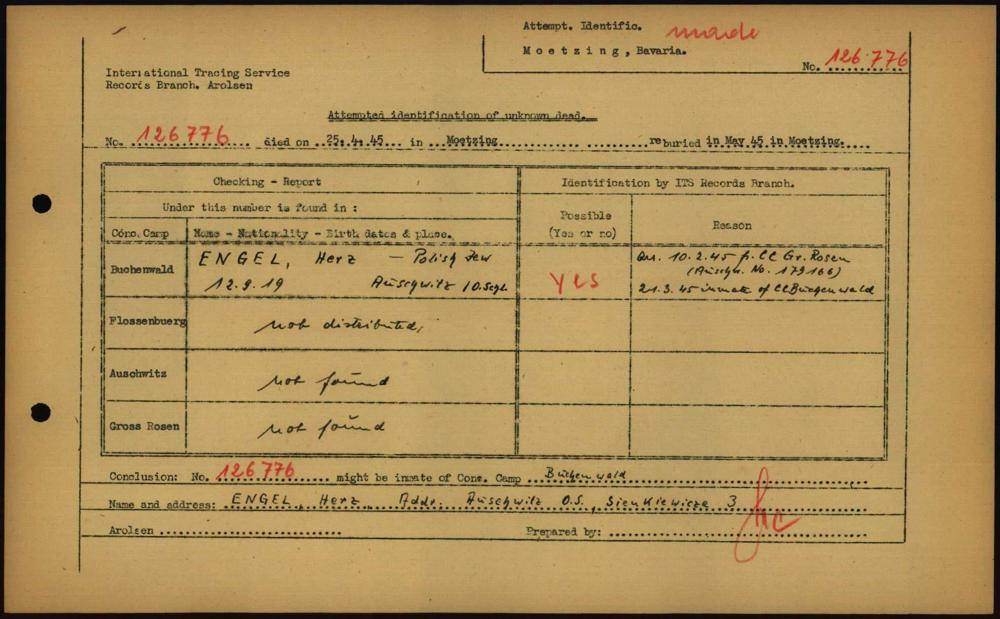 Attempt. Identific. made
Moetzing, Bavaria.
No. 126 776
International Tracing Service
Records Branch. Arolsen
Attempted identification of unknown dead.
No. 126 776 died on 25. 4. 45 in Moetzing reburied in May 45 in Moetzing.
Checking - Report
Identification by ITS Records Branch.
Under this number is found in :
Possible
(Yes or no)
Reason
Conc. Camp
Name - Nationality - Birth dates & place.
Buchenwald
ENGEL, Herz - Polish Jew
12.9.19 Auschwitz /O.Schl.
YES
Arr. 10.2.45 f. CC Gr. Rosen
(Auschw. No. 179166)
21.3.45 inmate of CC Buchenwald
Flossenbuerg
not distributed,
Auschwitz
not found
Gross Rosen
not found
Conclusion: No. 126 776 might be inmate of Conc. Camp Buchenwald
Name and address: ENGEL, Herz, Addr. Auschwitz O.S., Sienkiewicze 3
Arolsen
Prepared by: